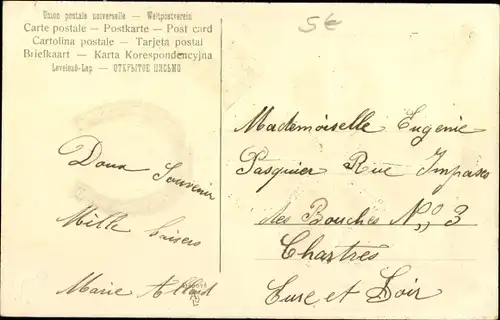 Union postale universelle — Weltpostverein
Carte postale — Postkarte — Post card
Cartolina postale — Tarjeta postal
Briefkaart — Karta Korespondencyjna
Levelező-Lap — ОТКРЫТОЕ ПИСЬМО
5€
Doux Souvenir
Mille baisers
Marie
Mademoiselle Eugénie
Pasquier Rue Impasse
des Bouches No 3
Chartres
Eure et Loir